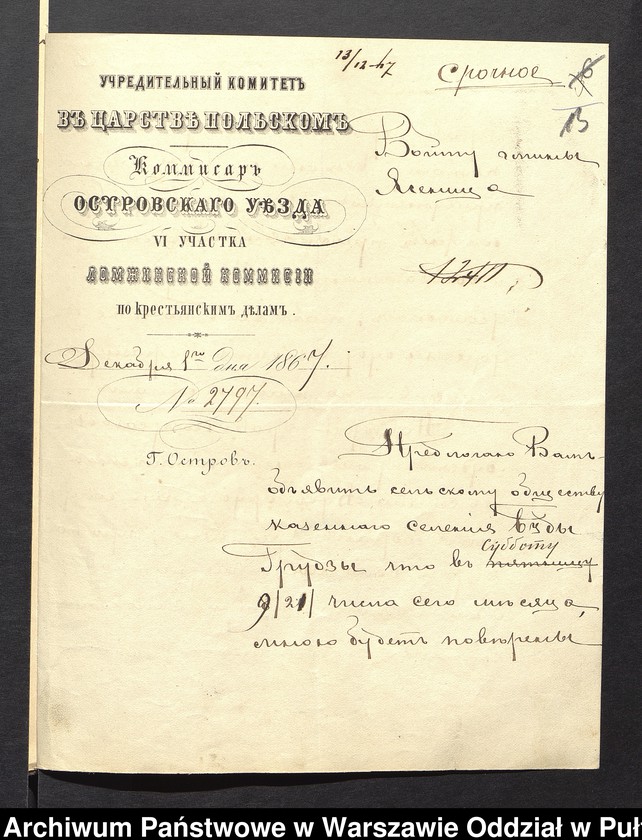 13/12 67
Срочное
13
УЧРЕДИТЕЛЬНЫЙ КОМИТЕТЪ
ВЪ ЦАРСТВѢ ПОЛЬСКОМЪ
Коммисаръ
ОСТРОВСКАГО УѢЗДА
VI УЧАСТКА
ЛОМЖИНСКОЙ КОММИСІИ
по крестьянскимъ дѣламъ.
Декабря 1го дня 1867.
№ 2797.
Г. Островъ.
Войту гмины
Ясеница
Предлагаю Вамъ
объявить сельскому обществу
казеннаго селенія Буды
Грудзы что въ пятницу Субботу
9/21/ числа сего мѣсяца,
мною будетъ повѣрены
Archiwum Państwowe w Warszawie Oddział w Puł